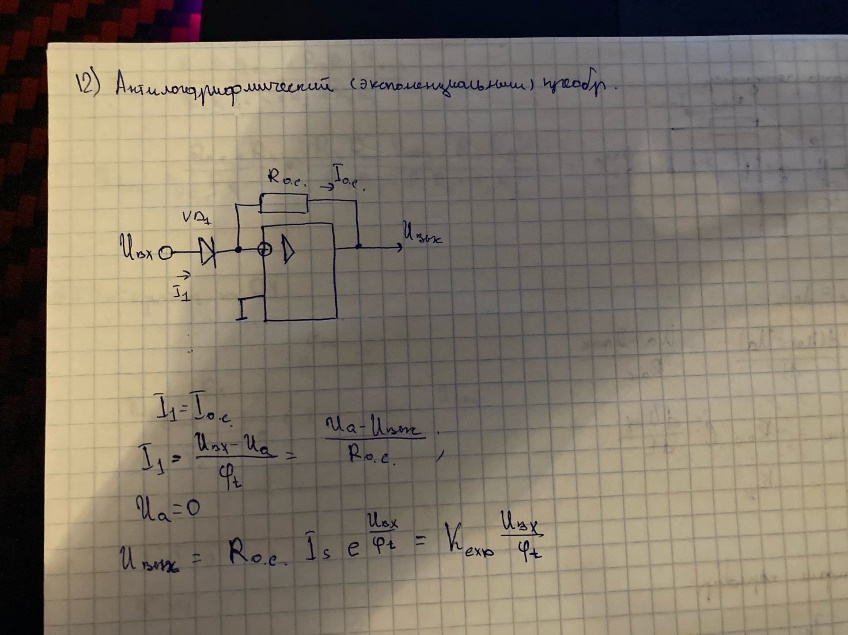 12) Антилогарифмический (экспоненциальный) преобр.
Rо.с. → Iо.с.
VD1
Uвх
Uвых
→
I1
I1 = Iо.с.
I1 = (Uвх - Uа) / φt = (Uа - Uвых) / Rо.с. ,
Uа = 0
Uвых = Rо.с. Is e^(Uвх/φt) = K exp Uвх/φt